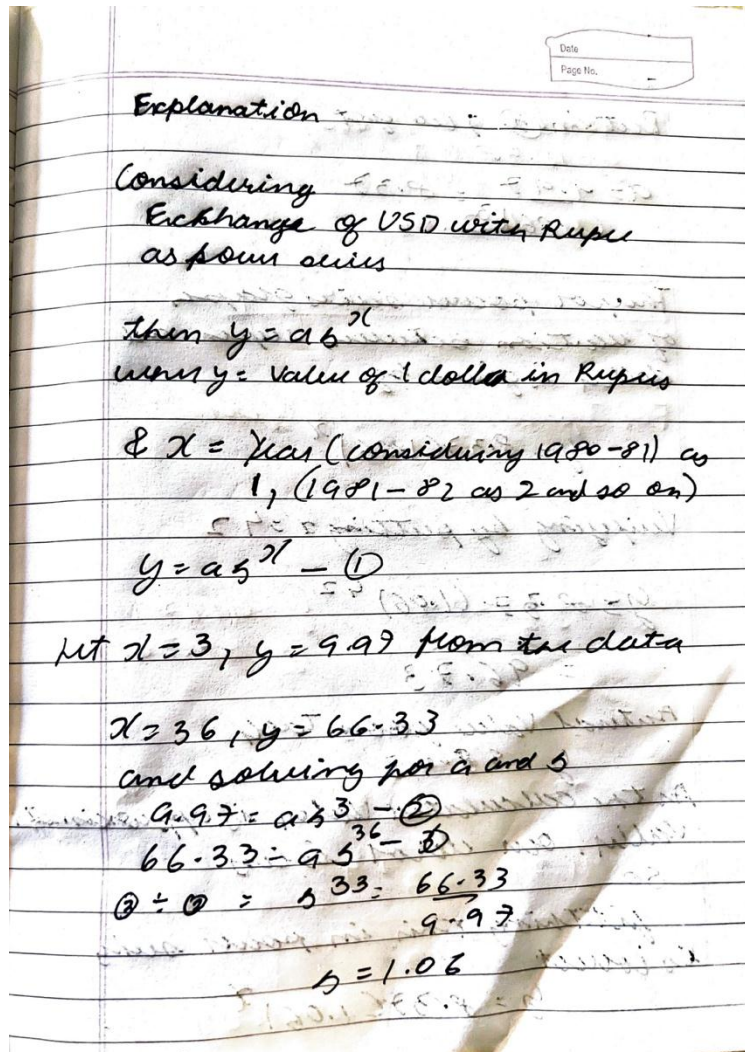 Date
Page No.
Explanation
Considering
Exchange of USD with Rupee
as power series
then y = ab^x
where y = value of 1 dollar in Rupees
& x = Year (considering 1980-81) as
1, (1981-82 as 2 and so on)
y = ab^x - ①
Let x = 3, y = 9.97 from the data
x = 36, y = 66.33
and solving for a and b
9.97 = ab^3 - ②
66.33 = ab^36 - ③
③ ÷ ② = b^33 = 66.33
9.97
b = 1.06